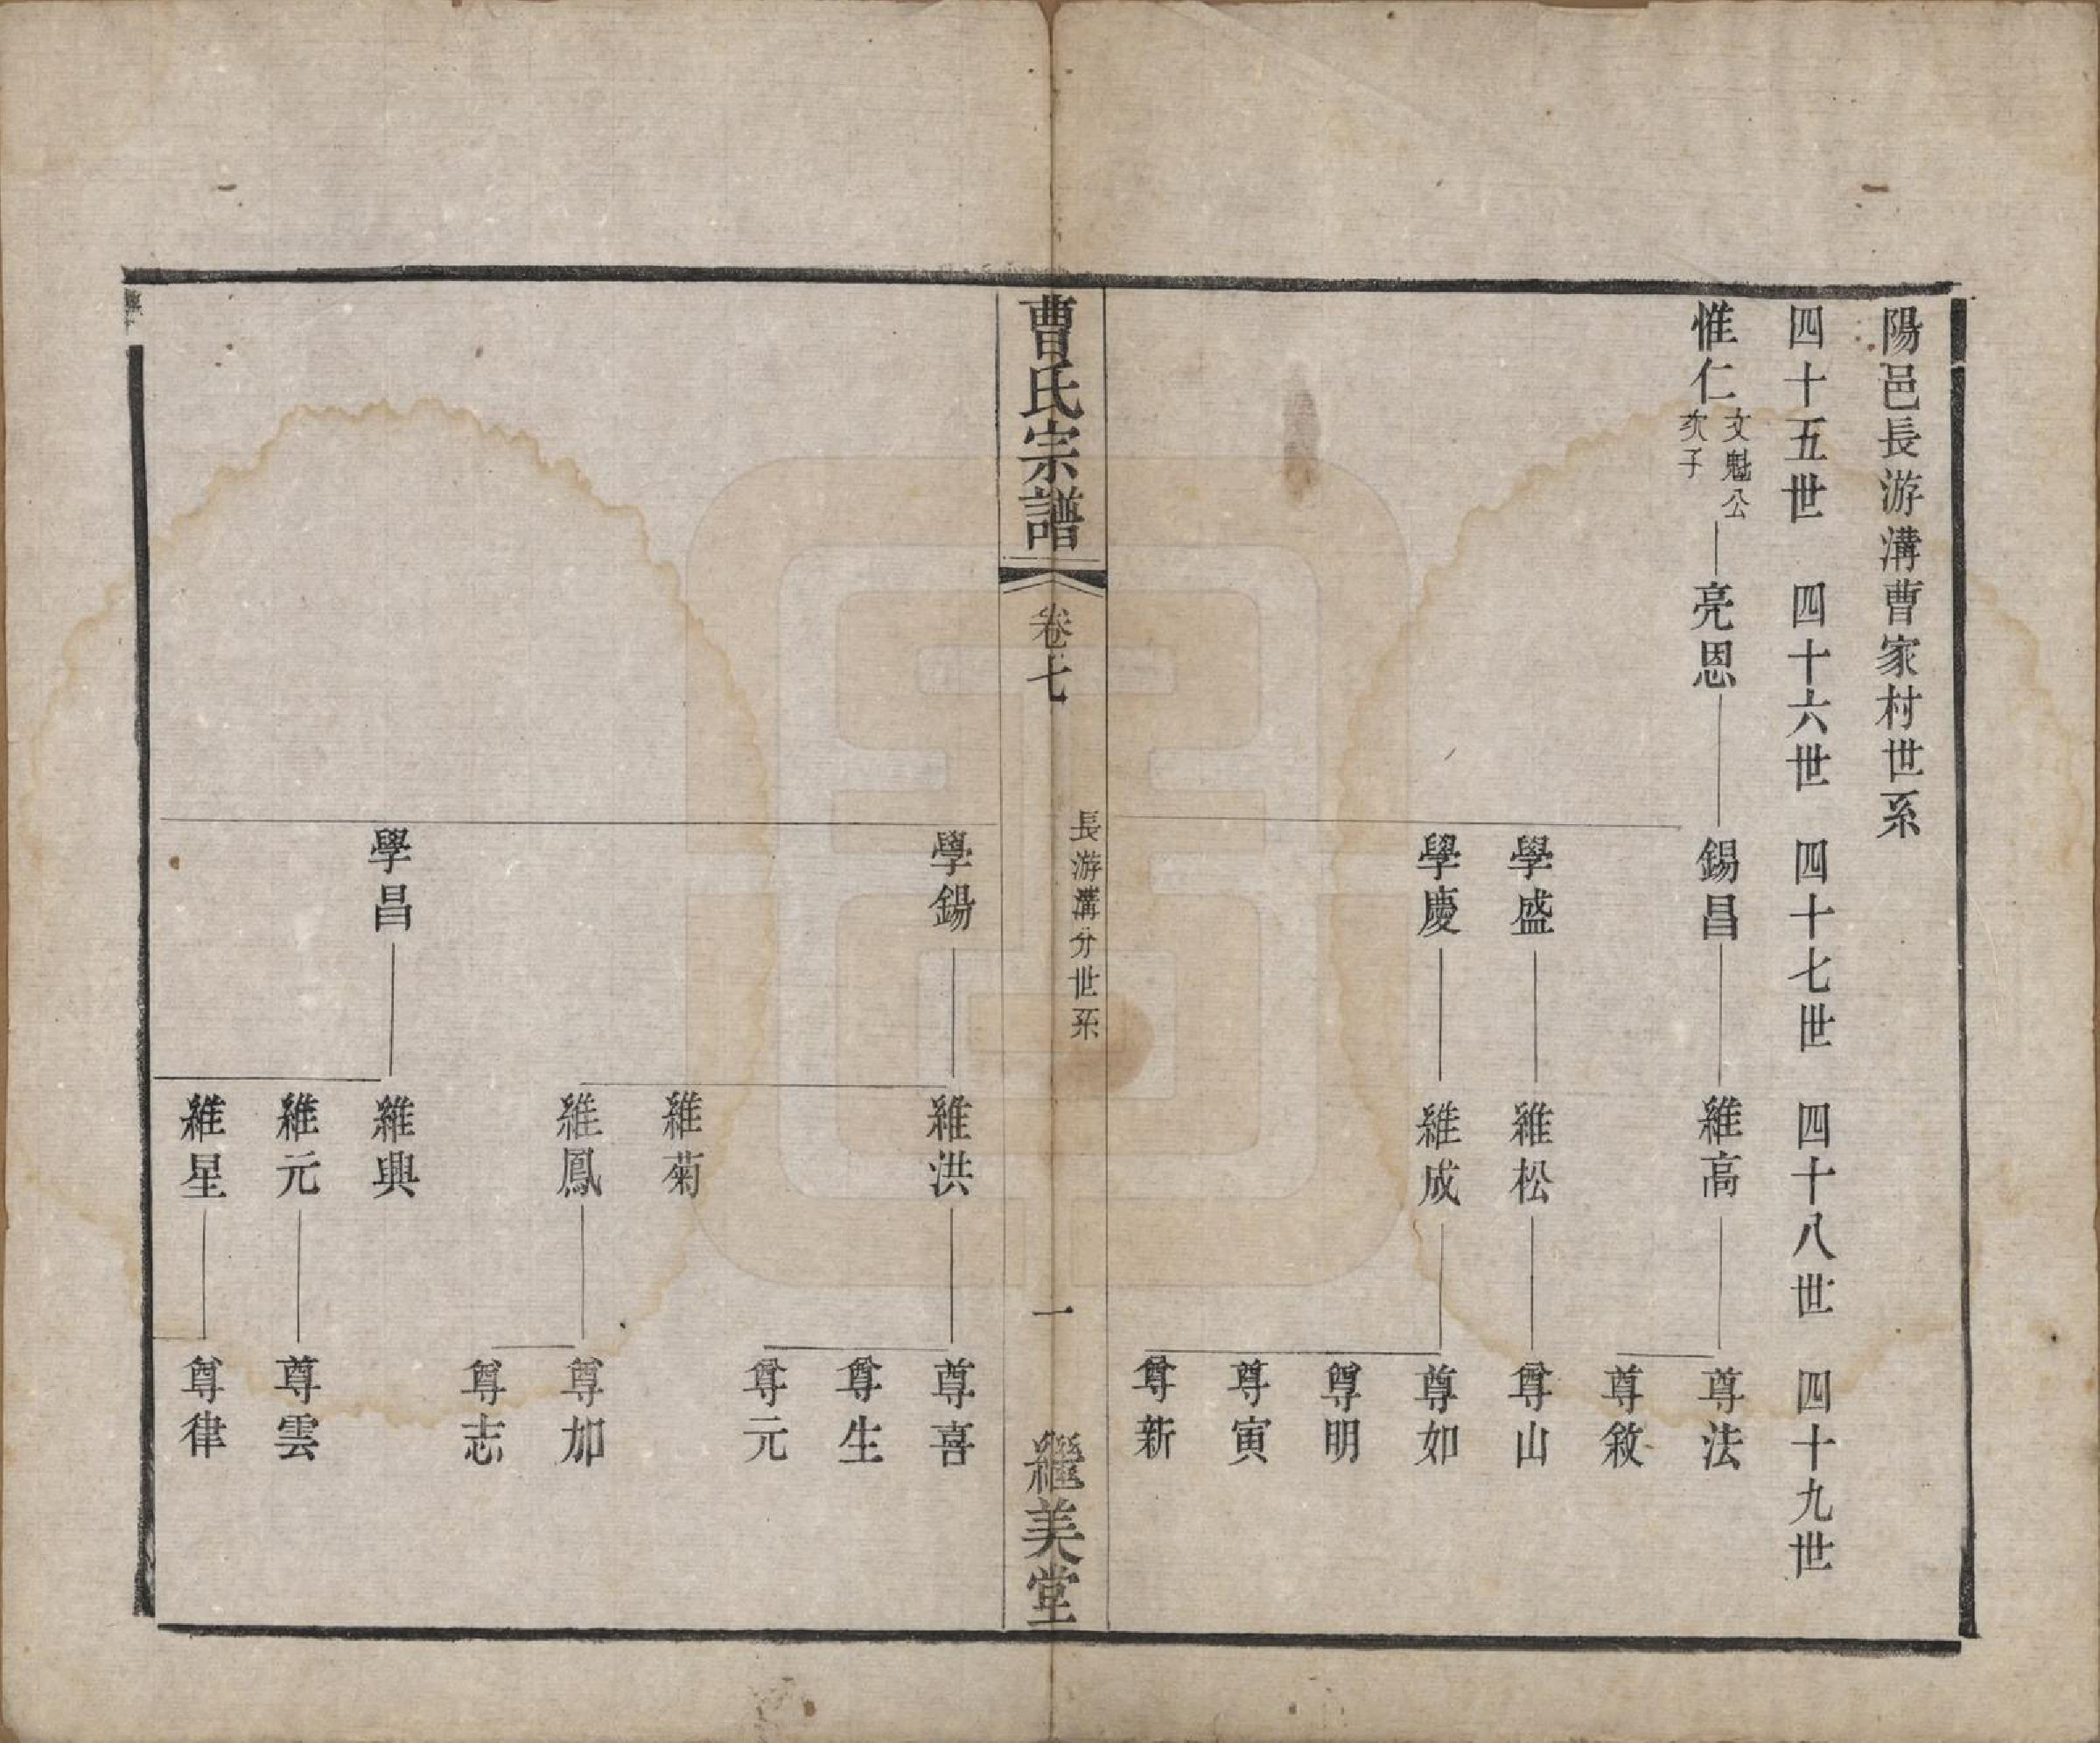 陽邑長游溝曹家村世系
四十五世 四十六世 四十七世 四十八世 四十九世
惟仁 文魁公次子 亮恩 錫昌 維高 尊法
尊敘
學盛 維松 尊山
學慶 維成 尊如
尊明
尊寅
尊新
曹氏宗譜 卷七 長游溝分世系 一 繼美堂
學錫 維洪 尊喜
尊生
尊元
維菊
維鳳 尊加
尊志
學昌 維興
維元 尊雲
維星 尊律